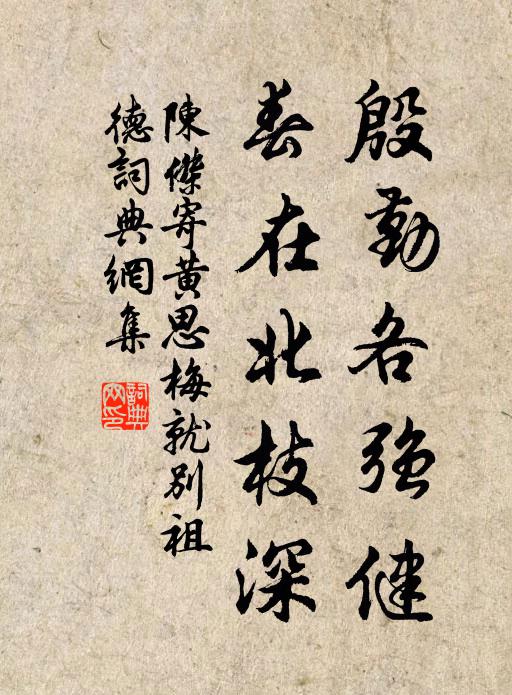 殷勤各強健
春在北枝深
陳傑寄黃思梅就別祖
德詞典網集
詞典
网印